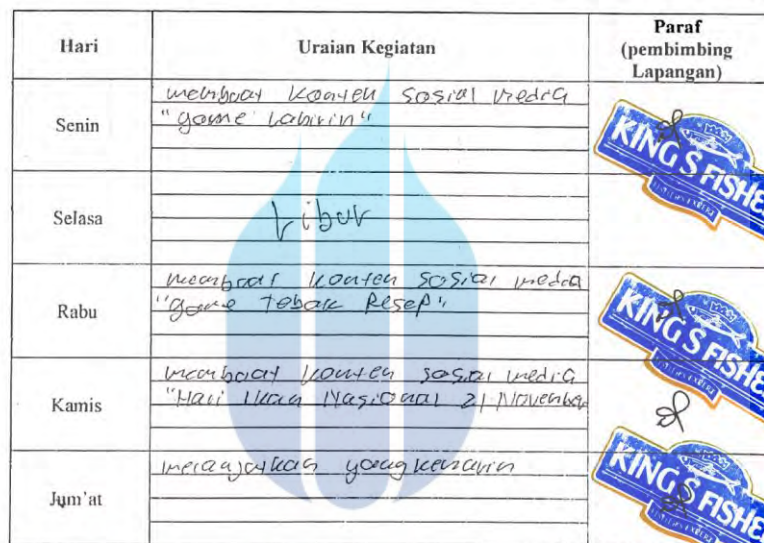 Hari
Uraian Kegiatan
Paraf
(pembimbing
Lapangan)
Senin
membuat konten sosial media
"game labirin"
KING'S FISHE
Selasa
Libur
Rabu
membuat konten sosial media
"game tebak Resep"
KING'S FISHE
Kamis
membuat konten sosial media
"Hari Ikan Nasional 21 November
Jum'at
melanjutkan yang kemarin
KING'S FISHE